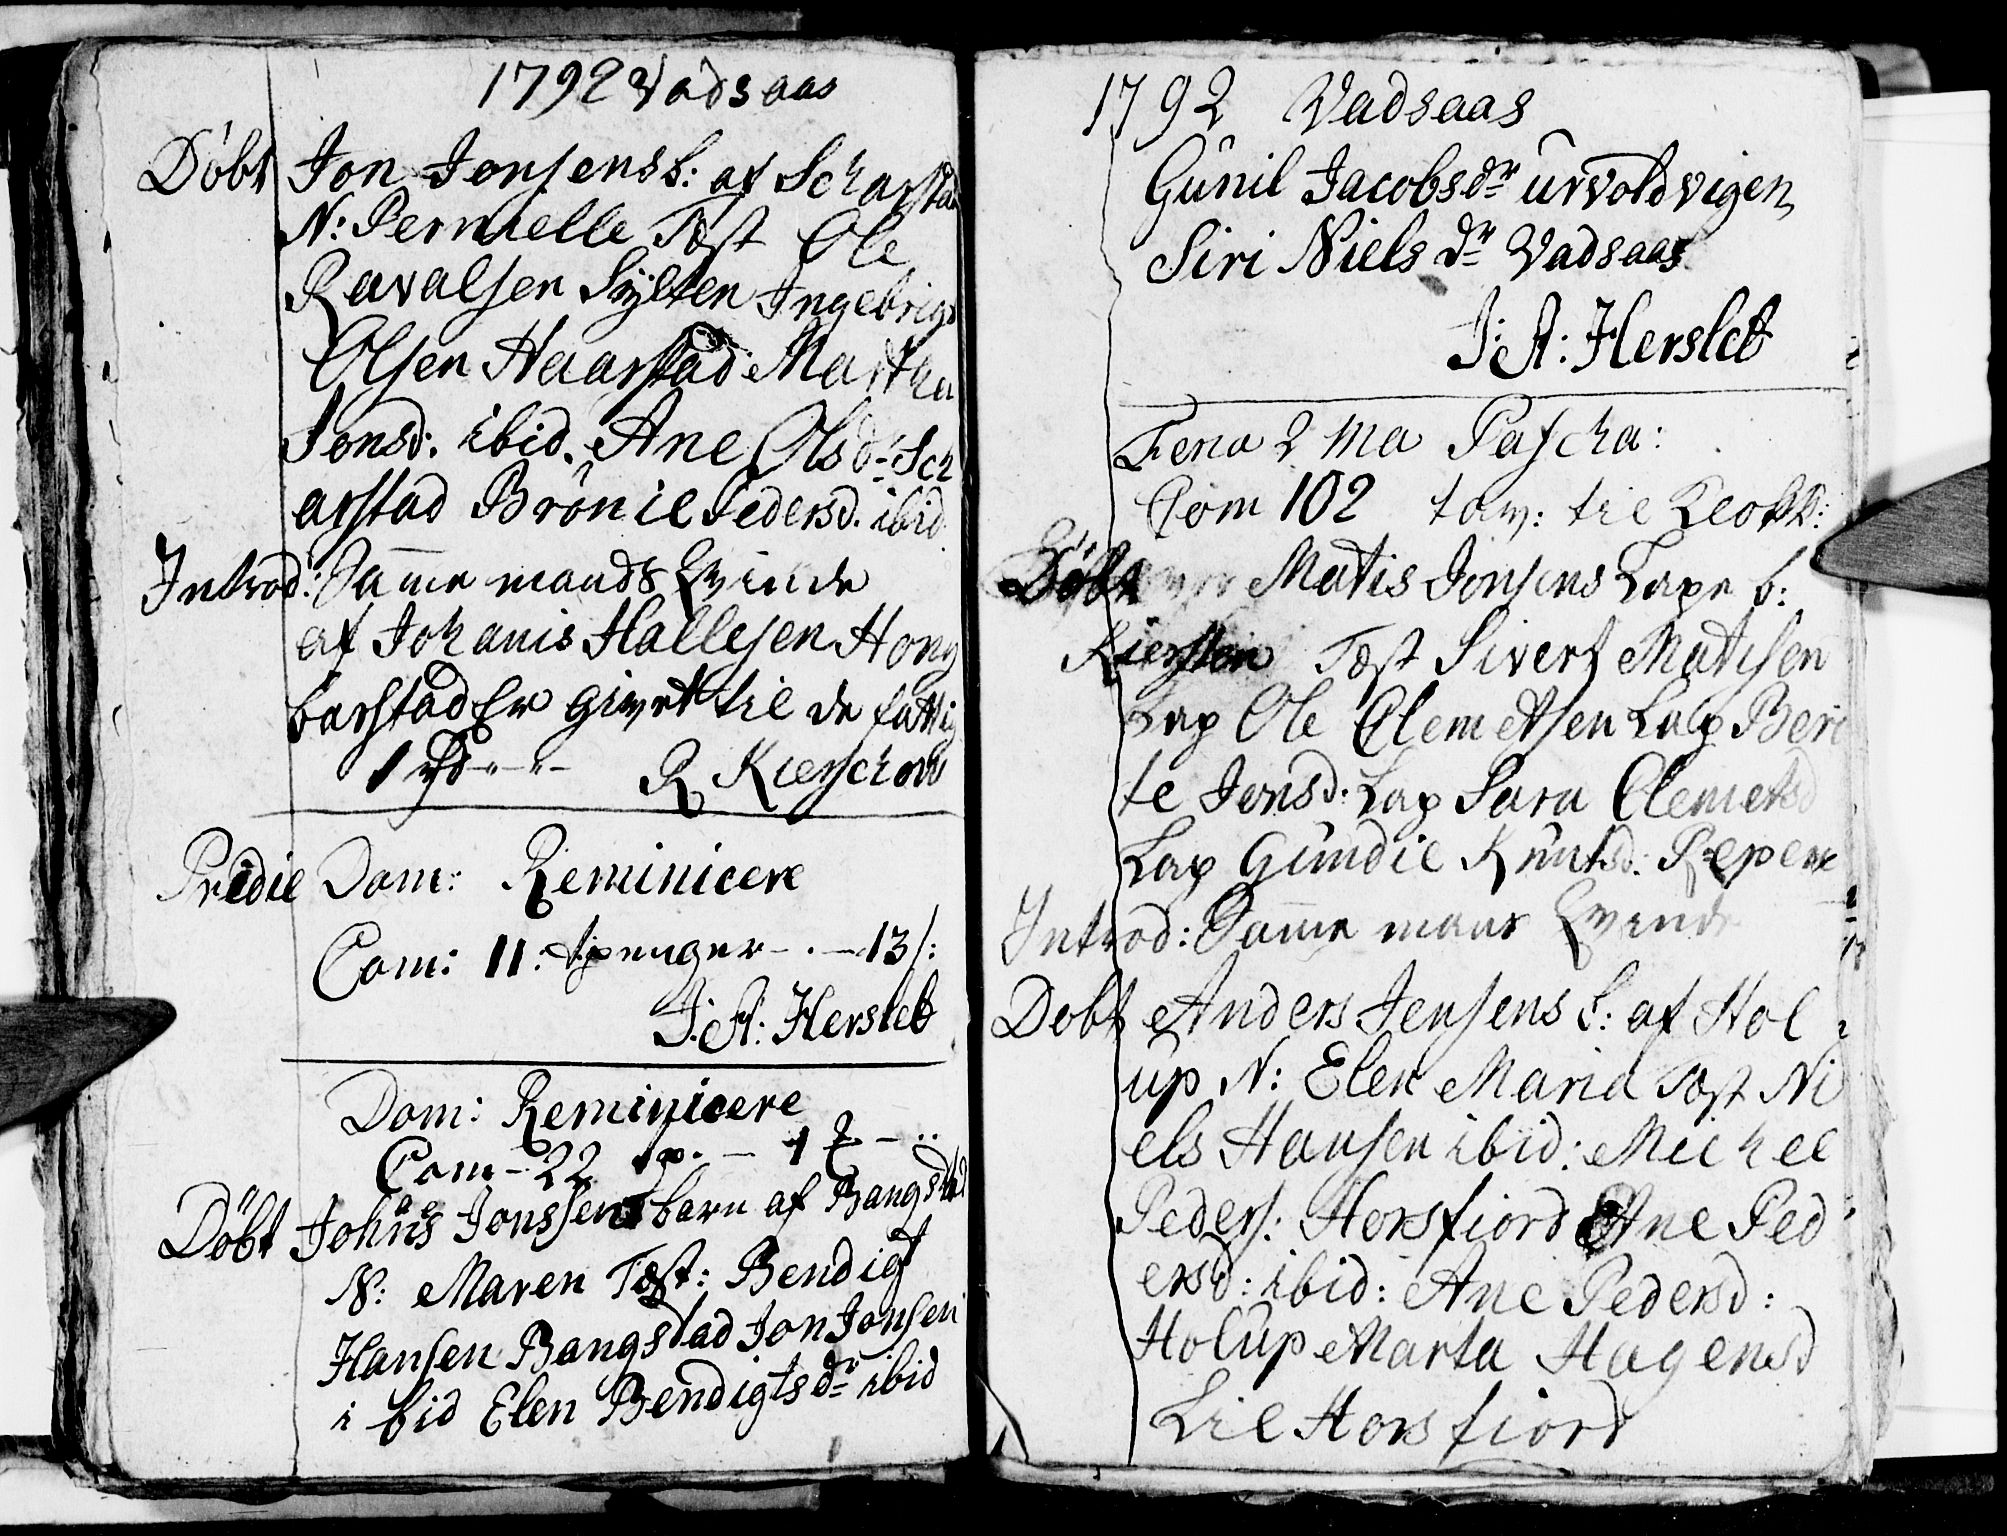 1792 Vadsaas
Døbt Jon Jonsens b: af Scharstad
N: Pernnelle Tæst Ole
Ravalsen Sylten Ingebrigt
Olsen Haarstad Martha
Jonsd: ibid. Ane Olsdr Sch
arstad Brønil Pedersd. ibid
Introd: Samme mands Qvinde
af Johanis Hallesen Hong
barstad Er givet til de fattig
1 rd R Kierschow
Pridie Dom: Reminicere
Com: 11: tpenger - . - 13 s:
J: A: Hersleb
Dom: Reminicere
Com - 22 tp. - 1 - ..
Døbt Johans Jonssens barn af Bangstad
N: Maren Tæst: Bendigt
Hansen Bangstad Jon Jonsen
ibid Elen Bendigtsdr ibid
1792 Vadsaas
Gunil Jacobsdr urvoldvigen
Siri Nielsdr Vadsaas
J: A: Hersleb
Feria 2 ma Pascha:
Com 102 tav: til Klokk:
Døbt Matis Jonsens Lape b:
Kiersten Tæst Sivert Matisen
Lap Ole Clemetsen Lap Beri
te Jonsd: Lap Sara Clemetsd
Lap Gundil Knutsd: Repen
Introd: Samme mans Qvinde
Døbt Anders Jensens b: af Hol
up N: Elen Maria Tæst Ni
els Hansen ibid: Michel
Peders: Horsfiord Ane Ped
ersd: ibid: Ane Pedersd:
Holup Marta Hagensd
Lil Horsfiord